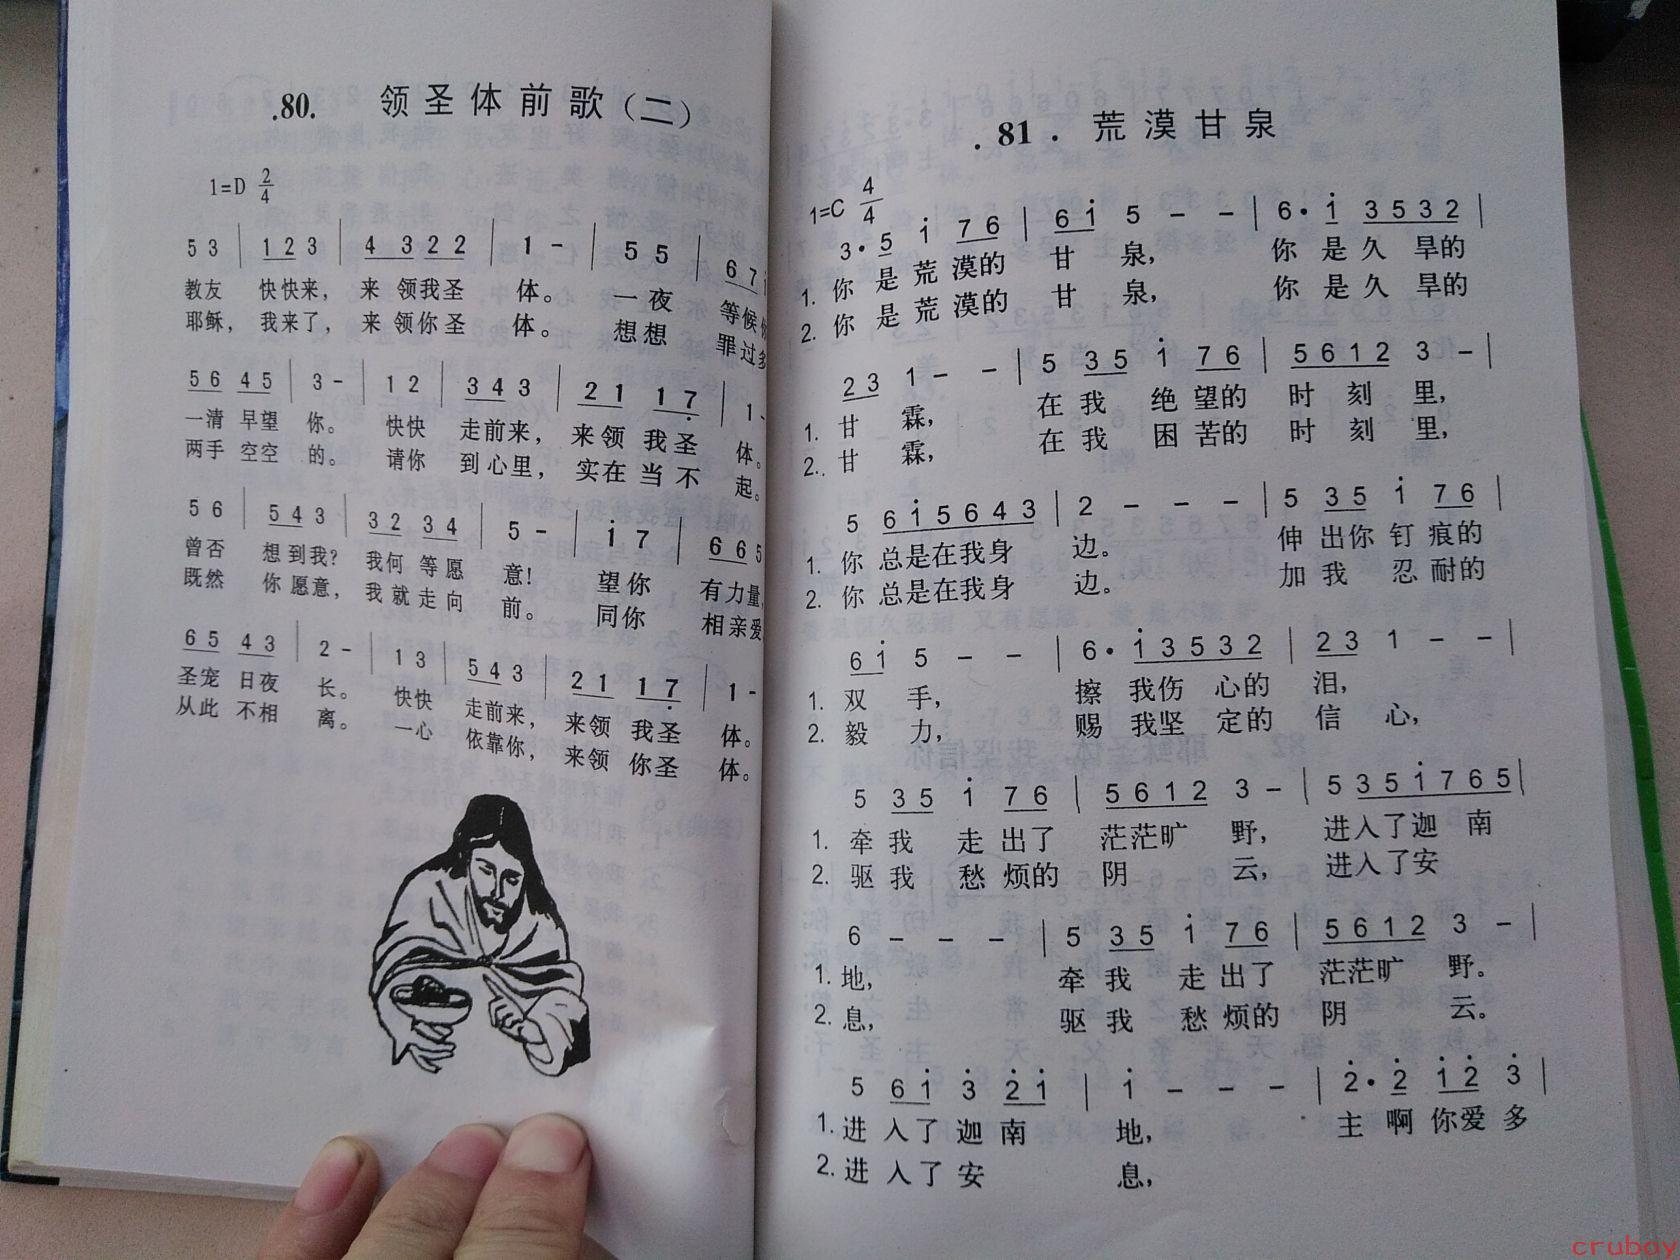 .80. 领圣体前歌(二)
1=D 2/4
5 3 | 1 2 3 | 4 3 2 2 | 1 - | 5 5 | 6 7 i
教友 快快来， 来 领我圣 体。 一 夜 等候
耶稣， 我来了， 来 领你圣 体。 想想 罪过多
5 6 4 5 | 3 - | 1 2 | 3 4 3 | 2 1 1 7̣ | 1 -
一清 早望 你。 快快 走前来， 来领 我圣 体。
两手 空空 的。 请你 到心里， 实在 当不 起。
5 6 | 5 4 3 | 3 2 3 4 | 5 - | i 7 | 6 6 5
曾否 想到我？ 我何 等愿 意! 望你 有力量，
既然 你愿意， 我就走向 前。 同你 相亲爱
6 5 4 3 | 2 - | 1 3 | 5 4 3 | 2 1 1 7̣ | 1 -
圣宠 日夜 长。 快快 走前来， 来领 我圣 体。
从此 不相 离。 一心 依靠你， 来领 你圣 体。
. 81 . 荒漠甘泉
1=C 4/4
3· 5 i 7 6 | 6 i 5 - - | 6· i 3 5 3 2 |
1. 你 是荒 漠的 甘 泉， 你 是久 旱的
2. 你 是荒 漠的 甘 泉， 你 是久 旱的
2 3 1 - - | 5 3 5 i 7 6 | 5 6 1 2 3 - |
1. 甘 霖， 在我 绝望的 时 刻 里，
2. 甘 霖， 在我 困苦的 时 刻 里，
5 6 i 5 6 4 3 | 2 - - - | 5 3 5 i 7 6 |
1. 你 总是在我身 边。 伸 出你 钉 痕的
2. 你 总是在我身 边。 加 我 忍 耐的
6 i 5 - - | 6· i 3 5 3 2 | 2 3 1 - - |
1. 双 手， 擦 我伤 心的 泪，
2. 毅 力， 赐 我坚 定的 信 心，
5 3 5 i 7 6 | 5 6 1 2 3 - | 5 3 5 i 7 6 5 |
1. 牵我 走 出了 茫茫旷 野， 进入了迦 南
2. 驱我 愁 烦的 阴 云， 进入了安
6 - - - | 5 3 5 i 7 6 | 5 6 1 2 3 - |
1. 地， 牵我 走出了 茫茫旷 野。
2. 息， 驱我 愁烦的 阴 云。
5 6 i 3̇ 2̇ i | i - - - | 2̇· 2̇ i 2̇ 3̇ |
1. 进 入了 迦 南 地， 主 啊 你爱 多
2. 进 入了 安 息，
cruboy